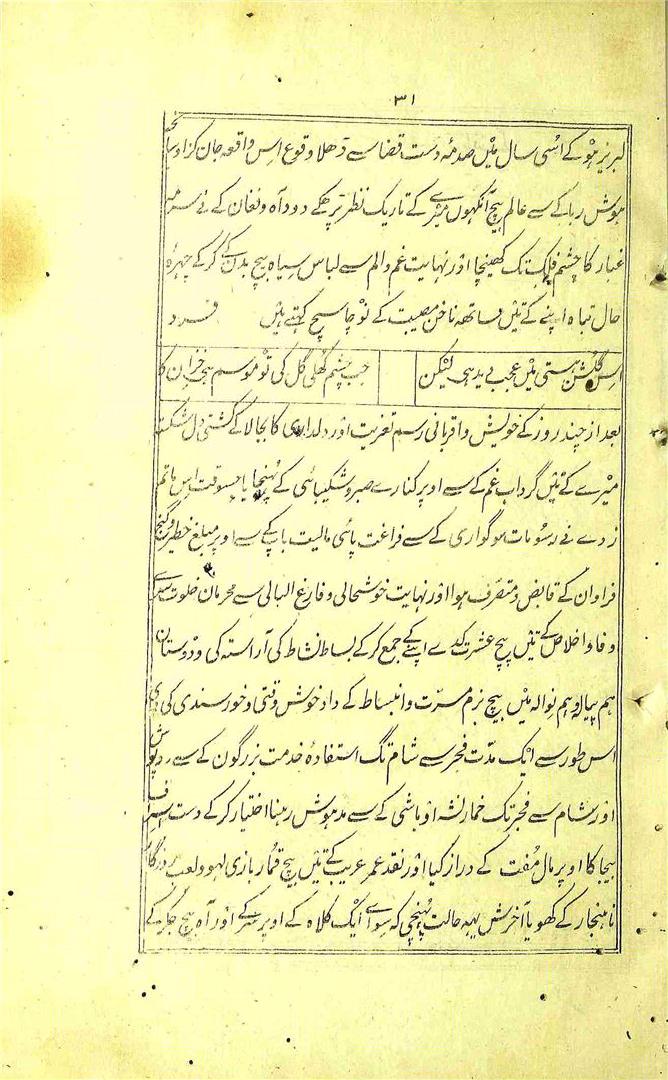 ۳۱
لبریز ہو کے اُسی سال میں صدمہ دست قضا سے دھلا وقوع اس واقعہ جان گزا و سانحہ
ہوش ربا کے سے عالم بیچ آنکھوں میرے کے تاریک نظر پر جھکے دود آہ و فغان کے نے سرمہ
غبار کا چشم فلک تک کھینچا اور نہایت غم و الم سے لباس سیاہ بیچ بدن کے کر کے چہرۂ
حال تباہ اپنے کے تئیں ساتھ ناخن مصیبت کے نوچا سچ کہتے ہیں فرد
اس گلشن ہستی میں عجب دید ہی لیکن
جب چشم کھلی گل کی تو موسم ہی خزان کا
بعد از چند روز کے خویش و اقربا نی رسم تعزیت اور دلداری کا بجا لا کے کشتی دل شکستہ
میرے کے تئیں گرداب غم کے سے اوپر کنارے صبر و شکیبائی کے پہنچایا جسوقت اس ماتم
زدے نے رسومات سوگواری کے سے فراغت پائی مالیت باپ کے سے اوپر مبلغ خطیر و گنج
فراوان کے قابض و متصرف ہوا اور نہایت خوشحالی و فارغ البالی سے محرمان خلوت سرائے
وفا و اخلاص کے تئیں بیچ عشرت کدے اپنے کے جمع کر کے بساط نشاط کی آراستہ کی و دوستان
ہم پیالہ و ہم نوالہ میں بیچ بزم مسرت و انبساط کے داد خوش وقتی و خورسندی کی دی
اس طور سے ایک مدت فجر سے شام تگ استفادۂ خدمت بزرگون کے سے روپوش
اور شام سے فجر تک خمار نشہ اوباشی کے سے مدہوش رہنا اختیار کر کے دست اسراف
بیجا کا اوپر مال مفت کے دراز کیا اور نقد عمر عزیز کے تئیں بیچ قمار بازی لہو و لعب روزگار
ناہنجار کے کھویا آخرش یہہ حالت پہنچی کہ سواے ایک کلاہ کے اوپر سر کے اور آہ بیچ جگر کے